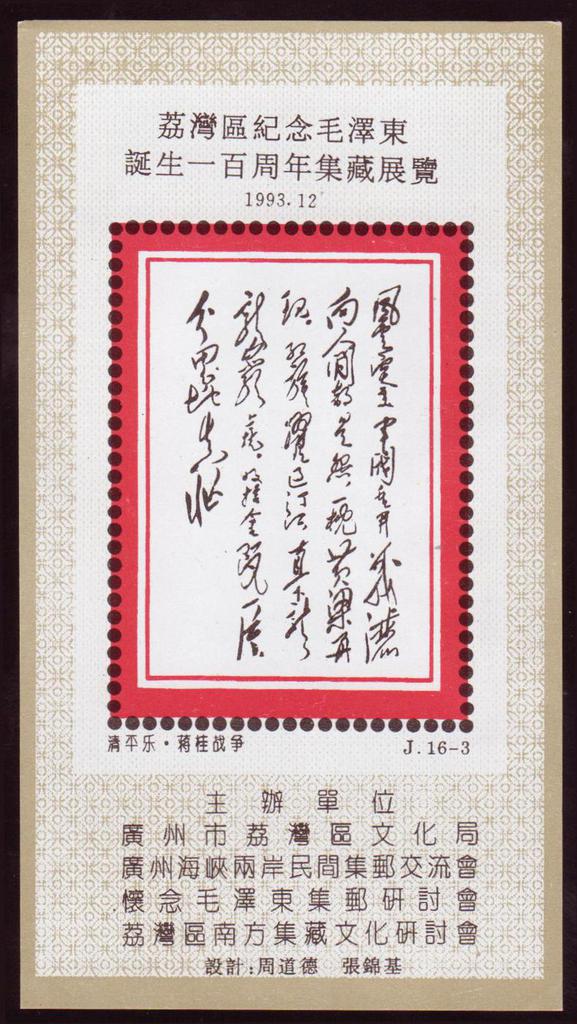 荔灣區紀念毛澤東
誕生一百周年集藏展覽
1993.12
風雲突变 軍閥重開战 洒
向人間都是怨,一枕黄粱再
现。红旗躍过汀江 直下
龙岩上杭。收拾金瓯一片,
分田分地真忙
清平乐·蒋桂战争
J.16-3
主辦單位
廣州市荔灣區文化局
廣州海峽兩岸民間集郵交流會
懷念毛澤東集郵研討會
荔灣區南方集藏文化研討會
設計:周道德 張錦基